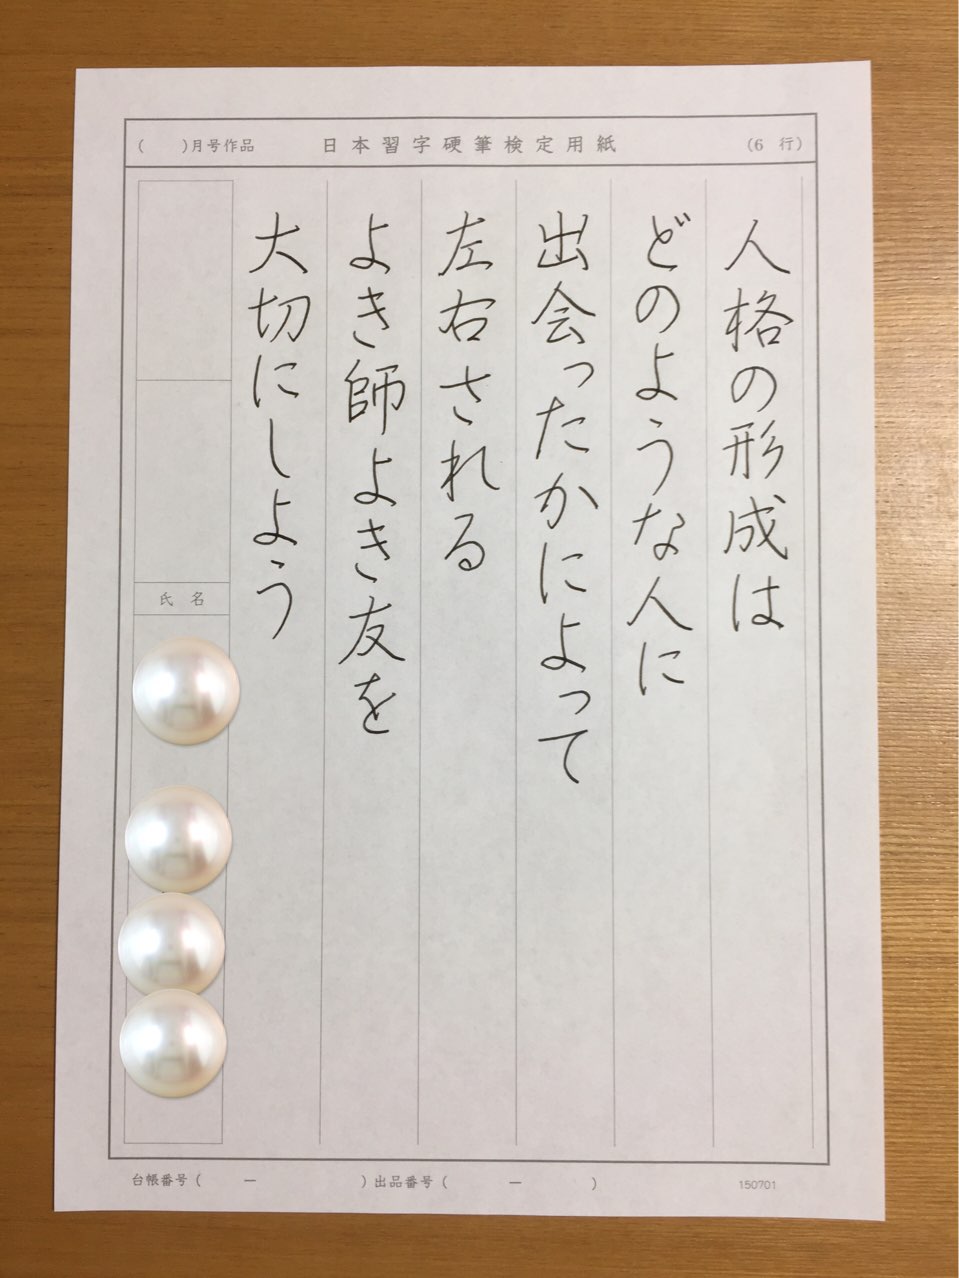 ( )月号作品 日本習字硬筆検定用紙 (6 行)
人格の形成は
どのような人に
出会ったかによって
左右される
よき師よき友を
大切にしよう
氏 名
台帳番号( ー )出品番号( ー )
150701